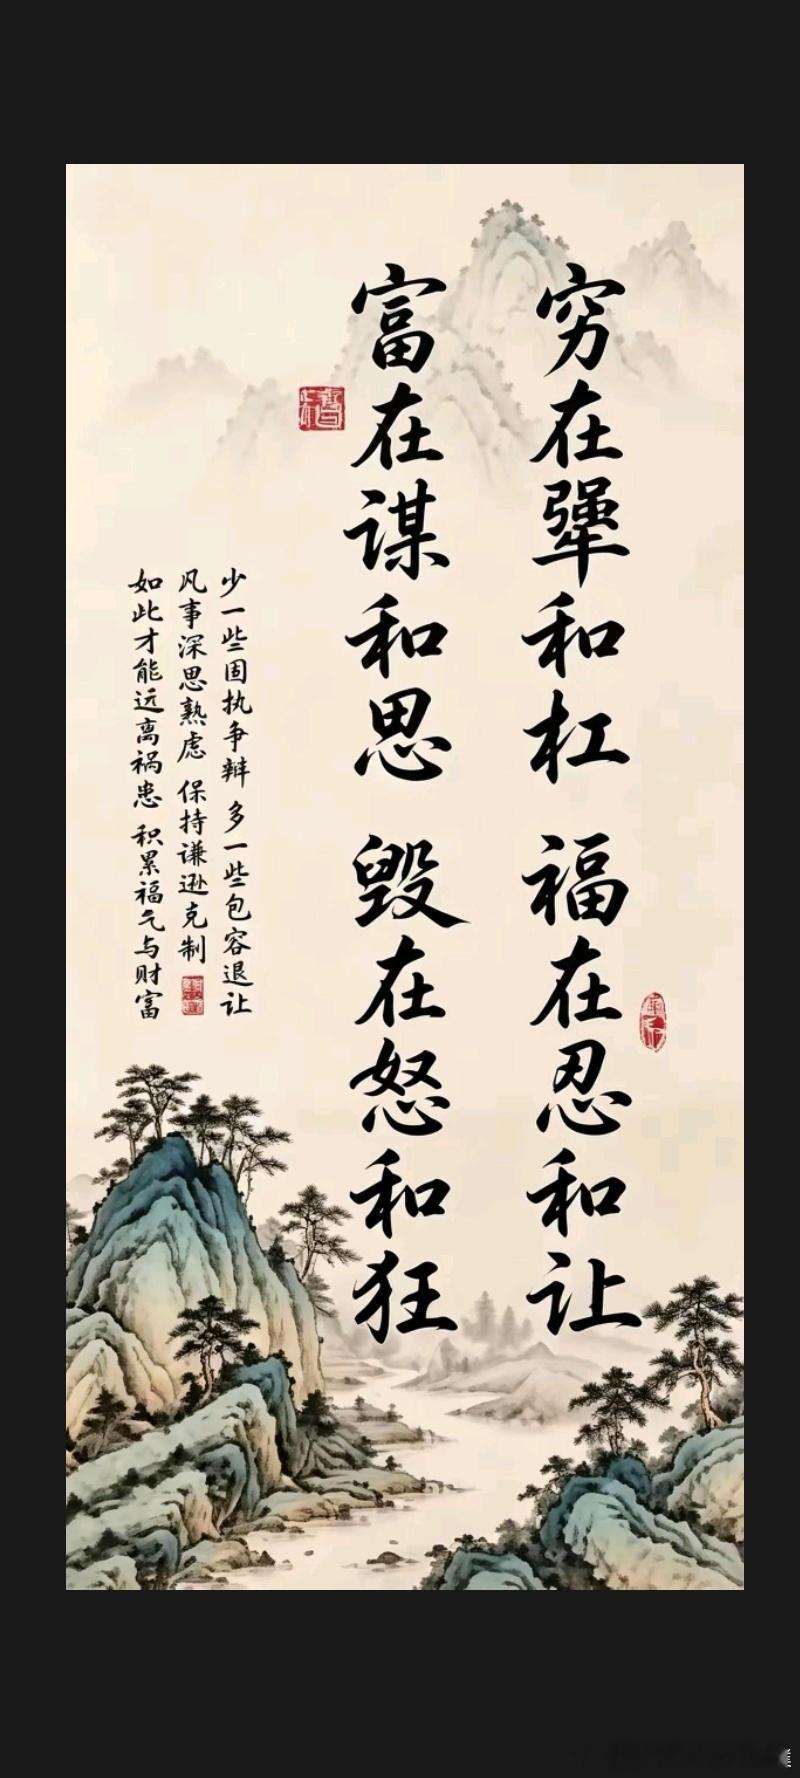 穷在犟和杠 福在忍和让
富在谋和思 毁在怒和狂
少一些固执争辩 多一些包容退让
凡事深思熟虑 保持谦逊克制
如此才能远离祸患 积累福气与财富